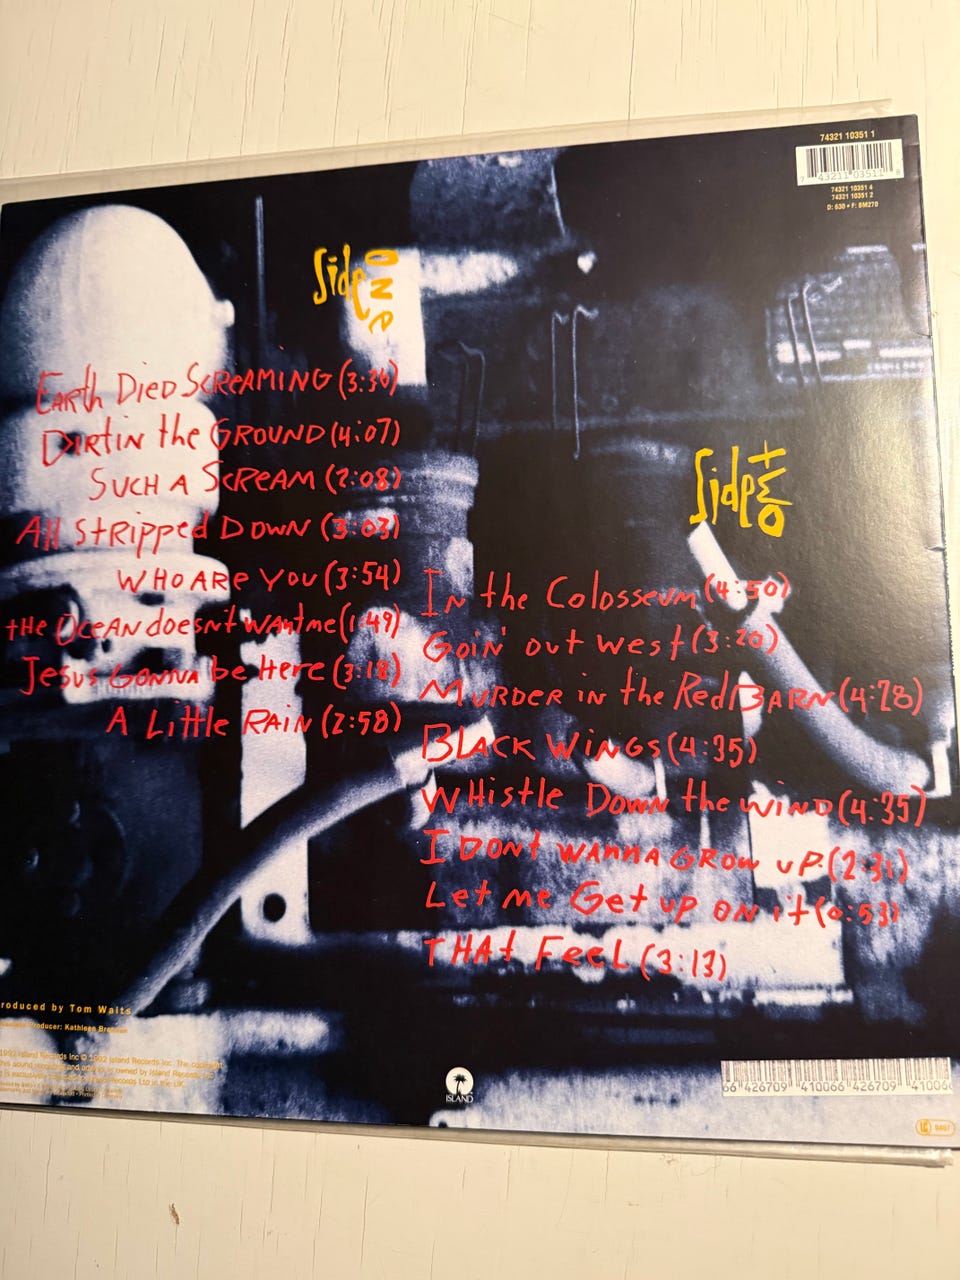 74321 10351 1
7 43211 03511 8
74321 10351 4
74321 10351 2
D: 630 • F: BM270
Side One
Earth Died Screaming (3:36)
Dirt in the Ground (4:07)
Such a Scream (2:08)
All Stripped Down (3:03)
Who Are You (3:54)
the Ocean doesn't want me (1:49)
Jesus Gonna be Here (3:18)
A Little Rain (2:58)
Side two
In the Colosseum (4:50)
Goin' out west (3:20)
Murder in the Red Barn (4:28)
Black Wings (4:35)
Whistle Down the Wind (4:35)
I Dont wanna Grow up (2:31)
Let me Get up on it (0:53)
That Feel (3:13)
roduced by Tom Waits
Producer: Kathleen Brennan
1992 Island Records Inc © 1992 Island Records Inc. The copyright
this sound recording and artwork is owned by Island Records
Records Ltd in the UK.
ISLAND
66 426709 410066 426709 41006